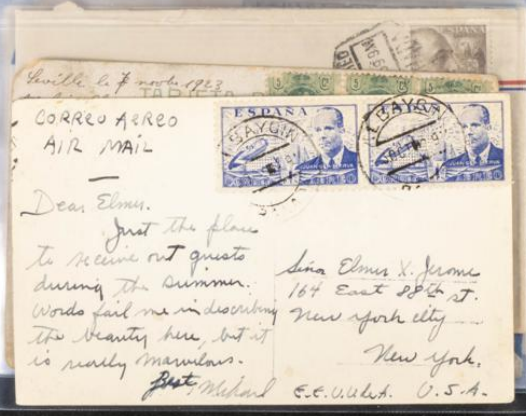 ESPAÑA
Seville le 7 novbre 1923
TARJETA
CORREO AEREO
AIR MAIL
ESPAÑA
Dear Elmer.
Just the place
to receive out guests
during the summer.
Words fail me in describing
the beauty here, but it
is really marvelous.
Best,
Señor Elmer X. Jerome
164 East 88th st.
New York city
New York.
E.E.U.U. de A. U.S.A.